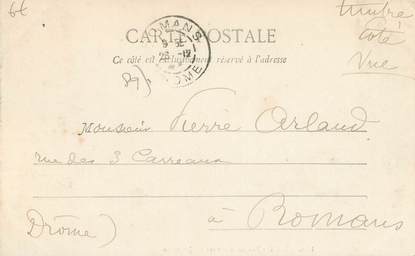 6€
timbré
côté
vue
CARTE POSTALE
Ce côté est exclusivement réservé à l'adresse
ROMANS
DROME
89)
Monsieur Pierre Arland
rue des 3 Carreaux
à Romans
Drôme)